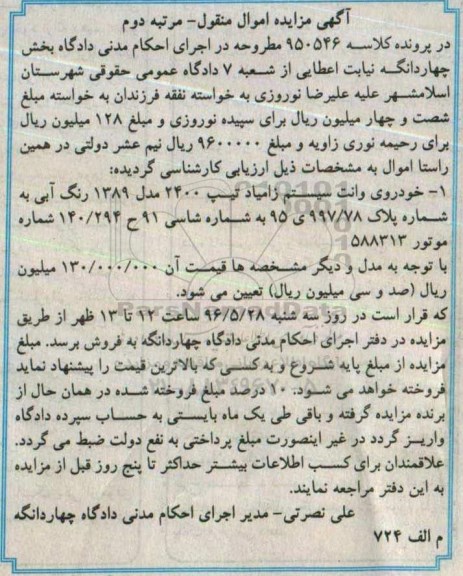 آگهی مزایده اموال منقول- مرتبه دوم
در پرونده کلاسه ۹۵۰۵۴۶ مطروحه در اجرای احکام مدنی دادگاه بخش
چهاردانگه نیابت اعطایی از شعبه ۷ دادگاه عمومی حقوقی شهرستان
اسلامشهر علیه علیرضا نوروزی به خواسته نفقه فرزندان به خواسته مبلغ
شصت و چهار میلیون ریال برای سپیده نوروزی و مبلغ ۱۲۸ میلیون ریال
برای رحیمه نوری زاویه و مبلغ ۹۶۰۰۰۰۰ ریال نیم عشر دولتی در همین
راستا اموال به مشخصات ذیل ارزیابی کارشناسی گردیده:
۱- خودروی وانت سیستم زامیاد تیپ ۲۴۰۰ مدل ۱۳۸۹ رنگ آبی به
شماره پلاک ۹۹۷/۷۸ ی ۹۵ به شماره شاسی ۹۱ ح ۱۴۰/۲۹۴ شماره
موتور ۵۸۸۳۱۳
با توجه به مدل و دیگر مشخصه ها قیمت آن ۱۳۰/۰۰۰/۰۰۰ میلیون
ریال (صد و سی میلیون ریال) تعیین می شود.
که قرار است در روز شنبه ۹۶/۵/۲۸ ساعت ۱۲ تا ۱۳ ظهر از طریق
مزایده در دفتر اجرای احکام مدنی دادگاه چهاردانگه به فروش برسد. مبلغ
مزایده از مبلغ پایه شروع و به کسی که بالاترین قیمت را پیشنهاد نماید
فروخته خواهد می شود. ۱۰ درصد مبلغ فروخته شده در همان حال از
برنده مزایده گرفته و باقی طی یک ماه بایستی به حساب سپرده دادگاه
واریز گردد در غیر اینصورت مبلغ پرداختی به نفع دولت ضبط می گردد.
علاقمندان برای کسب اطلاعات بیشتر حداکثر تا پنج روز قبل از مزایده
به این دفتر مراجعه نمایند.
علی نصرتی- مدیر اجرای احکام مدنی دادگاه چهاردانگه
م الف ۷۲۴